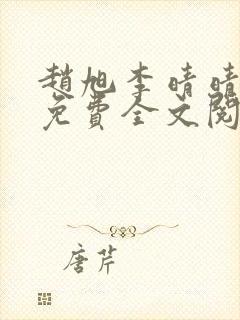 趙旭李晴晴
免費全文閱
唐芹